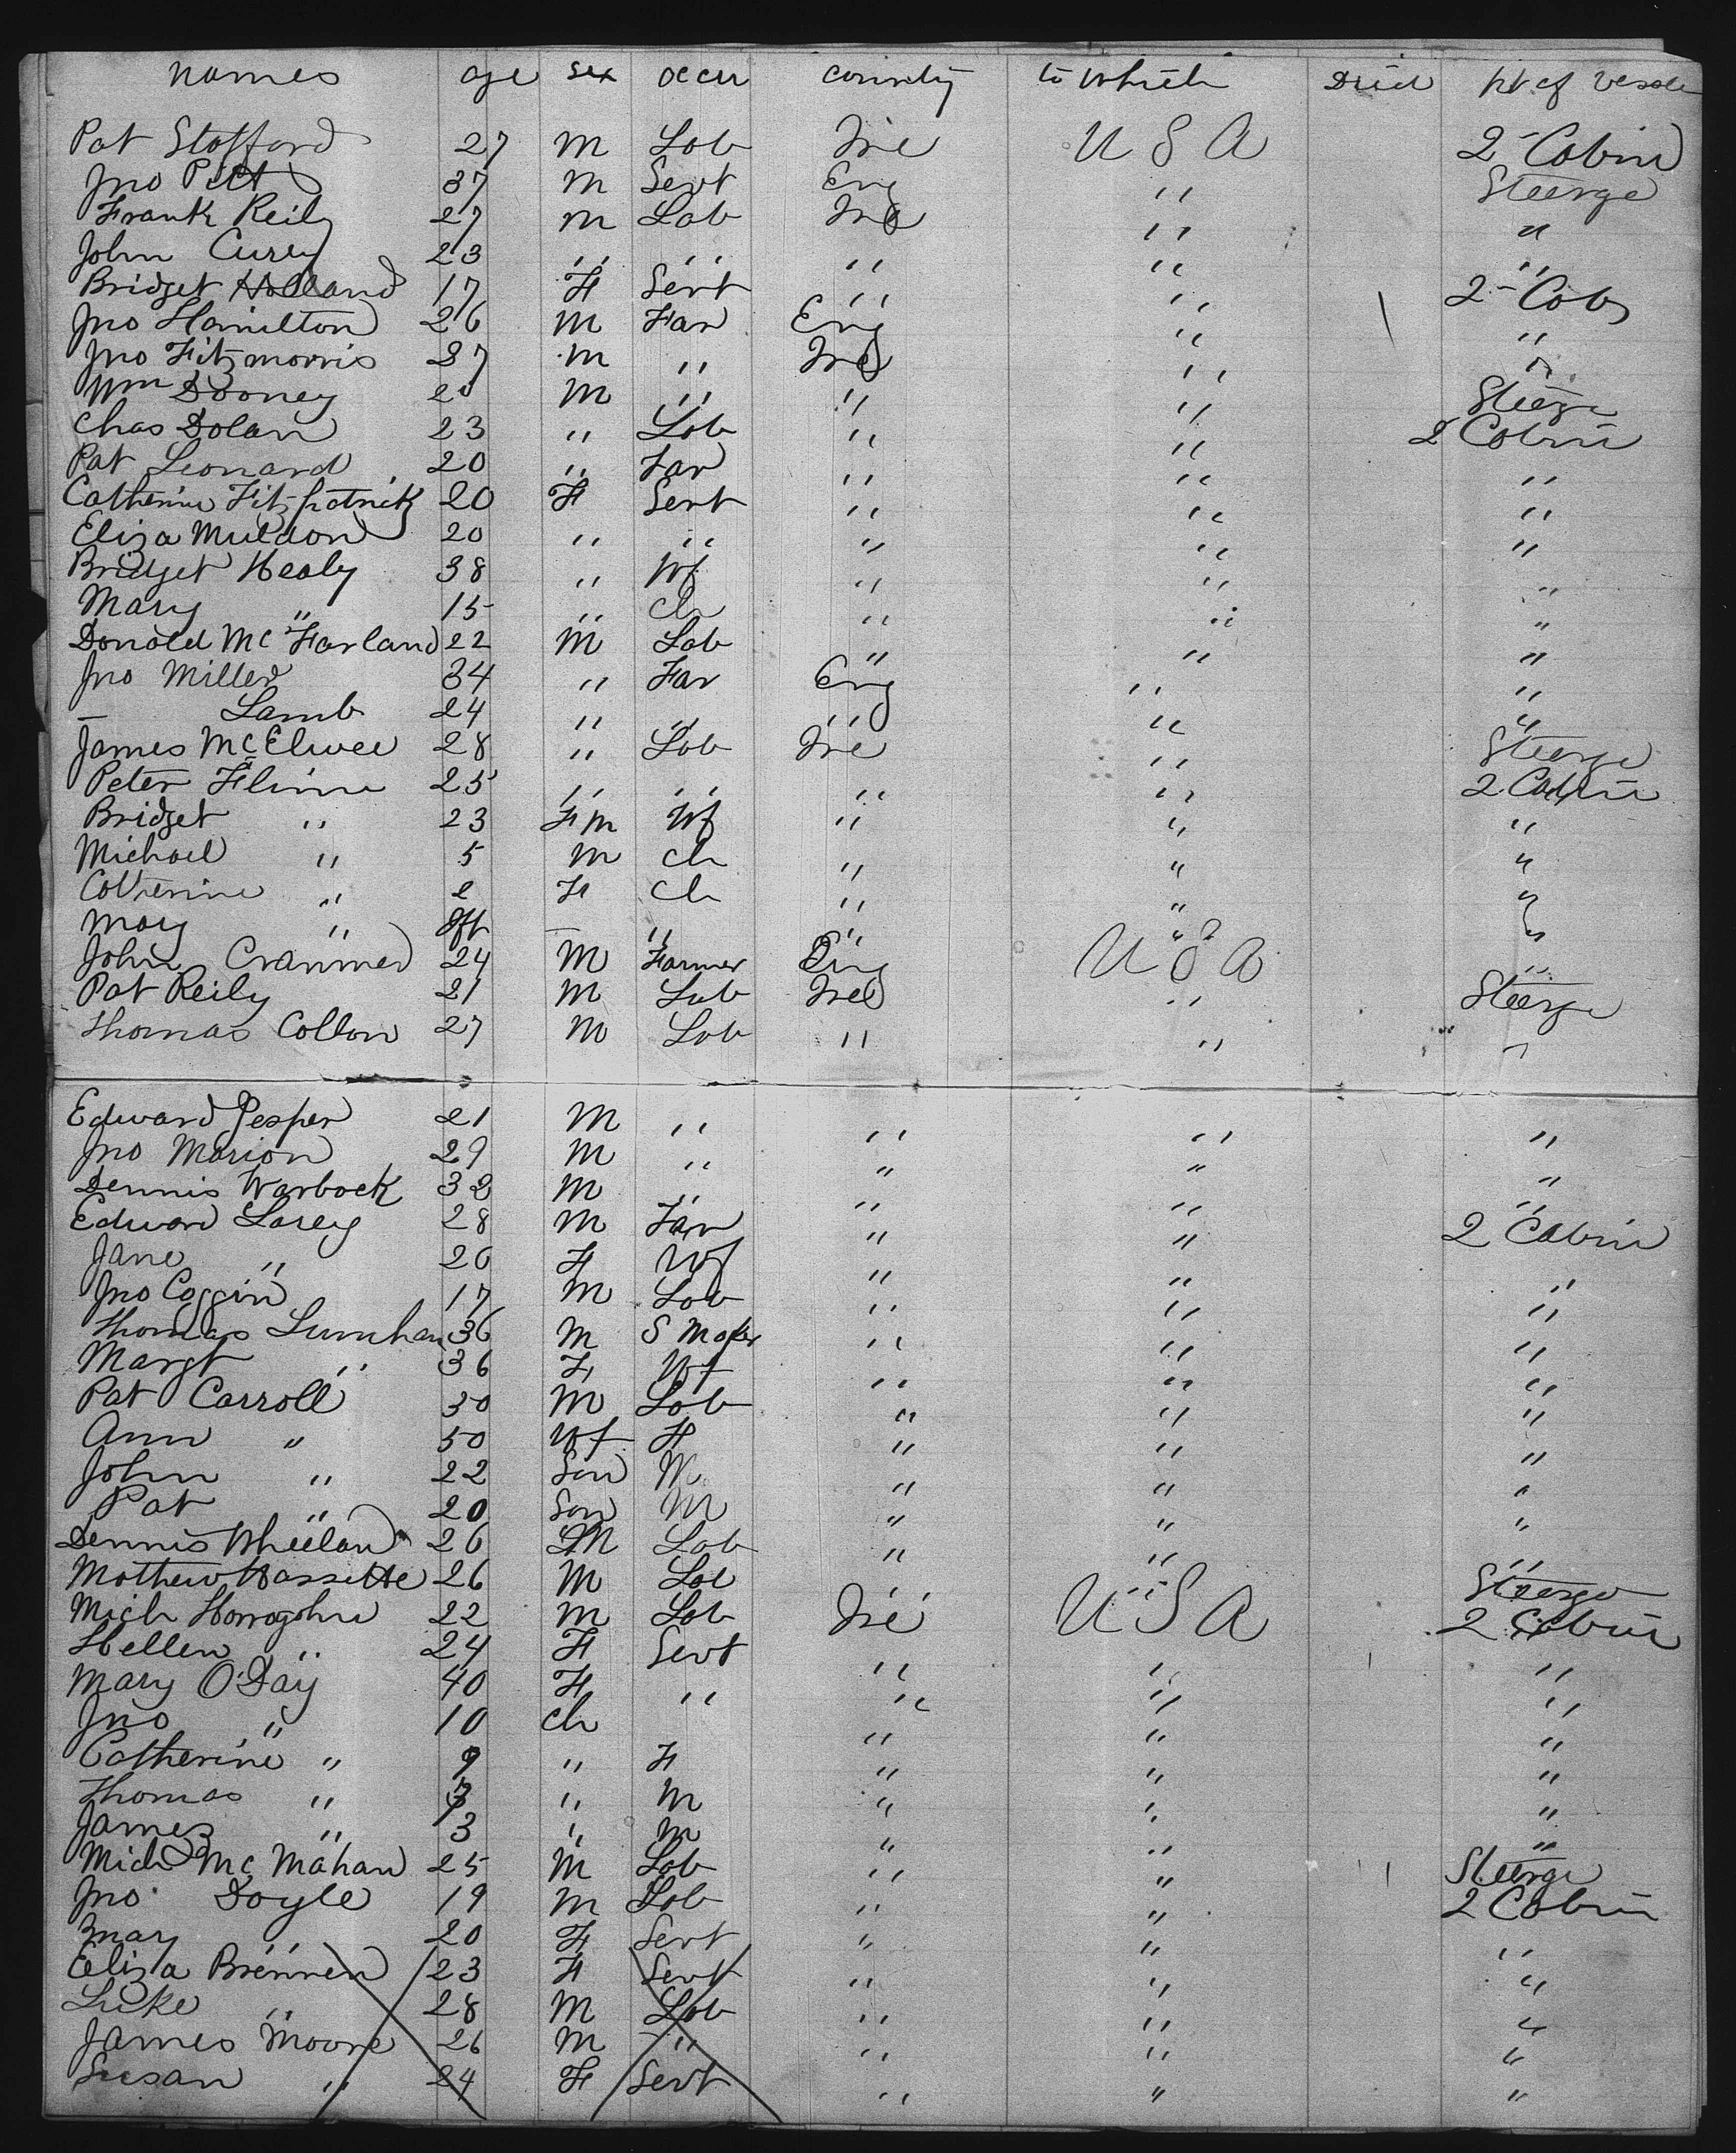 names age sex occu country to which Died pt of Vessle
Pat Stafford 27 M Lab Ire U S A 2 Cabin
Jno Pitt 37 M Servt Eng " Steerge
Frank Reily 27 M Lab Ire " "
John Curey 23 " " " " "
Bridget Holland 17 F Servt " " 2 Cab
Jno Hamilton 26 M Far Eng " "
Jno Fitzmorris 27 M " Ire " "
Wm Dooney 20 M " " " Steerge
Chas Dolan 23 " Lab " " 2 Cabin
Pat Leonard 20 " Far " " "
Catherine Fitzpatrick 20 F Servt " " "
Eliza Muldon 20 " " " " "
Bridget Healy 38 " Wf " " "
Mary " 15 " Ch " " "
Donald Mc Farland 22 M Lab " " "
Jno Miller 34 " Far Eng " "
— Lamb 24 " " " " "
James McElwee 28 " Lab Ire " Steerge
Peter Flinn 25 " " " " 2 Cabin
Bridget " 23 Fm Wf " " "
Michael " 5 M Ch " " "
Catherine " 2 F Ch " " "
Mary " Ift — " " " "
John Cranmer 24 M Farmer Eng U S A "
Pat Reily 21 M Lab Ire " Steerge
Thomas Collon 27 M Lab " " "
Edward Jesper 21 M " " " "
Jno Marion 29 M " " " "
Dennis Warbock 32 M " " " "
Edward Larey 28 M Far " " 2 Cabin
Jane " 26 F Wf " " "
Jno Coggin 17 M Lab " " "
Thomas Lurnhan 36 M S Maker " " "
Margt " 36 F Wf " " "
Pat Carroll 50 M Lab " " "
Ann " 50 Wf F " " "
John " 22 Son M " " "
Pat " 20 Son M " " "
Dennis Wheelan 26 M Lab " " "
Mathew Hassette 26 M Lab " " Steerge
Mich 22 M Lab Ire U S A 2 Cabin
Hellen " 24 F Servt " " "
Mary O'Day 40 F " " " "
Jno " 10 Ch " " "
Catherine " 9 " F " " "
Thomas " 7 " M " " "
James " 3 " M " " "
Mich Mc Mahan 25 M Lab " " Steerge
Jno Doyle 19 M Lab " " 2 Cabin
Mary " 20 F Servt " " "
Eliza Brennen 23 F Servt " " "
Luke " 28 M Lab " " "
James Moore 26 M " " " "
Susan " 24 F Servt " " "